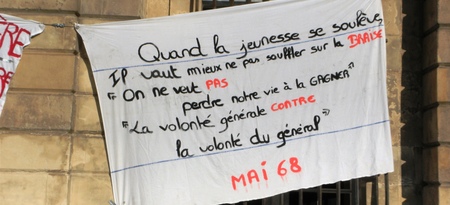 Quand la jeunesse se soulève,
Il vaut mieux ne pas souffler sur la BRAISE
"On ne veut PAS
perdre notre vie à la GAGNER"
"La volonté générale CONTRE
la volonté du général"
MAI 68